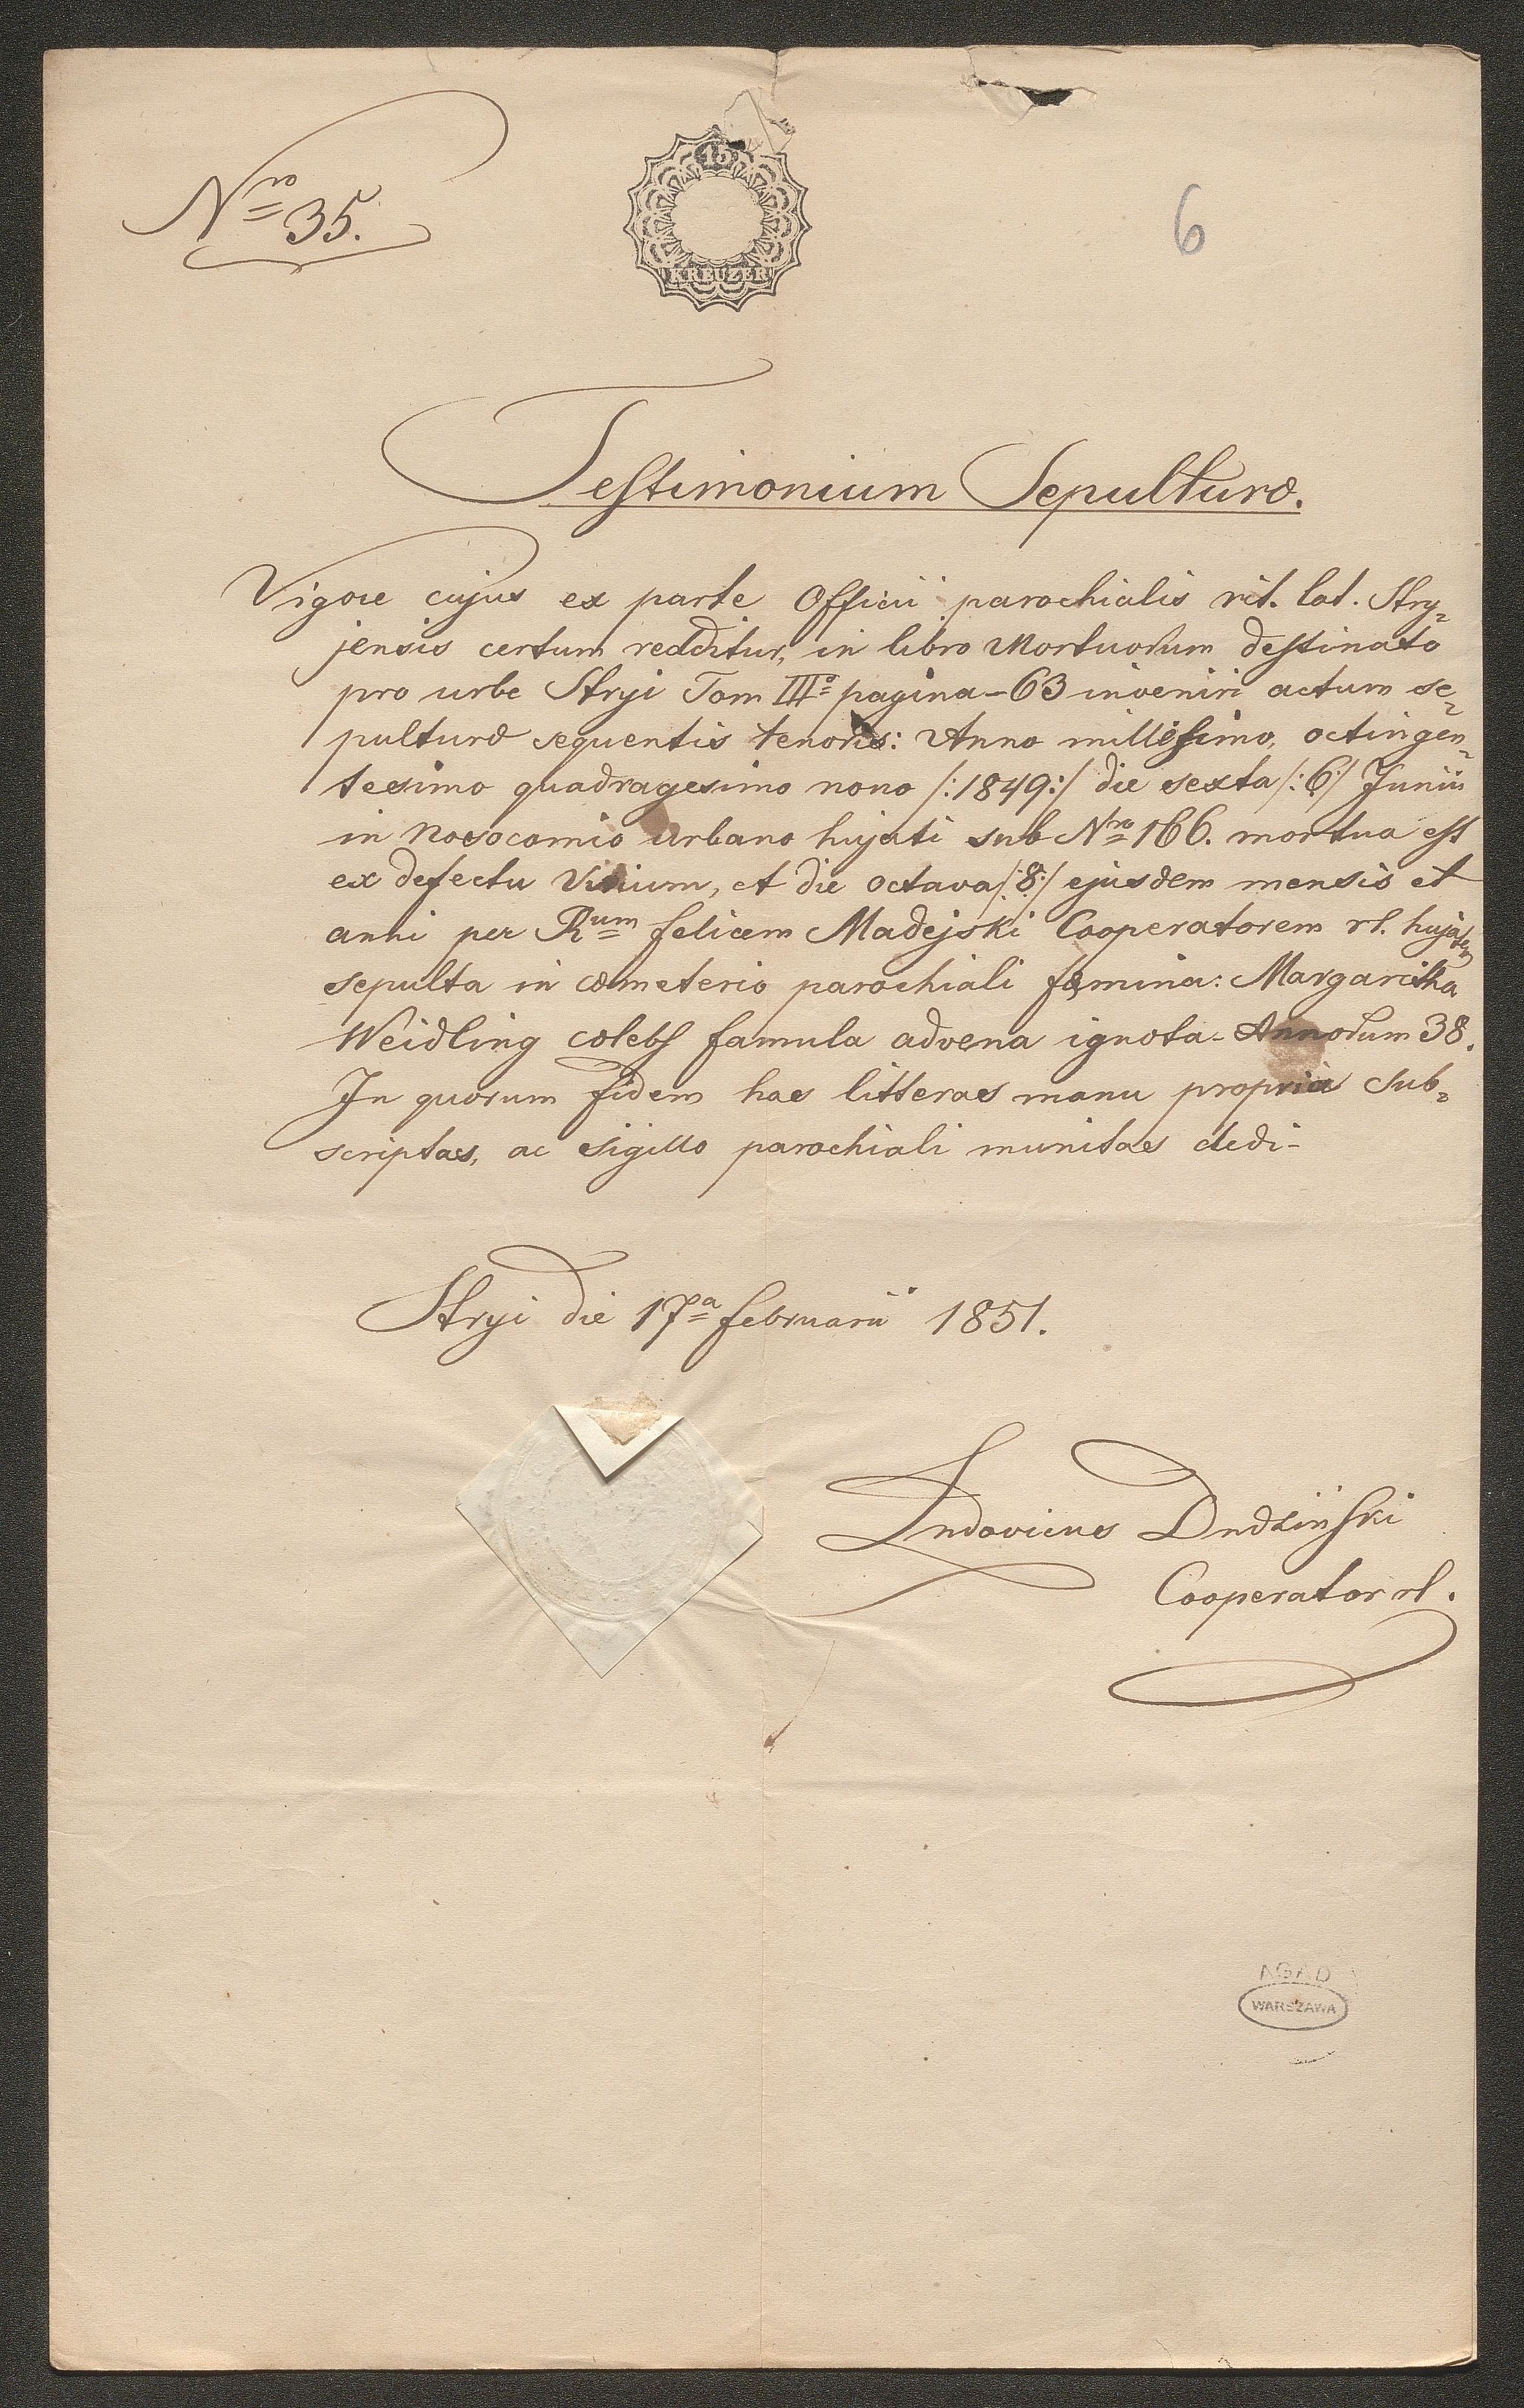 Nro 35.
15
KREUZER
6
Testimonium Sepulturæ.
Vigore cujus ex parte Officii parochialis rit. lat. Stry-
jensis certum redditur, in libro Mortuorum destinato
pro urbe Stryi Tom IIIo pagina - 63 inveniri actum se-
pulturæ sequentis tenoris: Anno millesimo, octingen-
tesimo quadragesimo nono /:1849:/ die sexta /:6:/ Junii
in Nosocomio urbano hujati sub Nro 166. mortua est
ex defectu Virium, et die octava /:8:/ ejusdem mensis et
anni per Rum felicem Madejski Cooperatorem rl. hujatem
sepulta in cœmeterio parochiali fœmina: Margaretha
Weidling cœlebs famula advena ignota - Annorum 38.
In quorum fidem has litteras manu propria sub-
scriptas, ac sigillo parochiali munitas dedi -
Stryi die 17a februarii 1851.
Ludovicus Dudziński
Cooperator rl.
AGAD
WARSZAWA